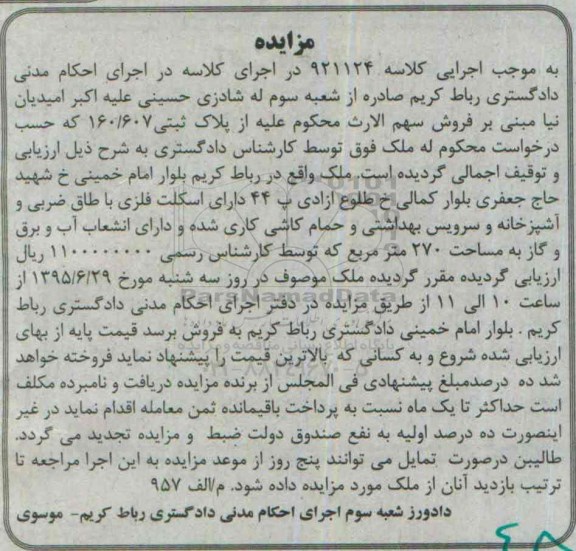 مزایده
به موجب اجرایی کلاسه ۹۲۱۱۲۴ در اجرای کلاسه در اجرای احکام مدنی
دادگستری رباط کریم صادره از شعبه سوم له شادزی حسینی علیه اکبر امیدیان
نیا مبنی بر فروش سهم الارث محکوم علیه از پلاک ثبتی ۱۶۰/۶۰۷ که حسب
درخواست محکوم له ملک فوق توسط کارشناس دادگستری به شرح ذیل ارزیابی
و توقیف اجمالی گردیده است. ملک واقع در رباط کریم بلوار امام خمینی خ شهید
حاج جعفری بلوار کمالی خ طلوع ازادی پ ۴۴ دارای اسکلت فلزی با طاق ضربی و
آشپزخانه و سرویس بهداشتی و حمام کاشی کاری شده و دارای انشعاب آب و برق
و گاز به مساحت ۲۷۰ متر مربع که توسط کارشناس رسمی ۱۱۰۰۰۰۰۰۰۰۰ ریال
ارزیابی گردیده مقرر گردیده ملک موصوف در روز سه شنبه مورخ ۱۳۹۵/۶/۲۹ از
ساعت ۱۰ الی ۱۱ از طریق مزایده در دفتر اجرای احکام مدنی دادگستری رباط
کریم . بلوار امام خمینی دادگستری رباط کریم به فروش برسد قیمت پایه از بهای
ارزیابی شده شروع و به کسانی که بالاترین قیمت را پیشنهاد نماید فروخته خواهد
شد ده درصدمبلغ پیشنهادی فی المجلس از برنده مزایده دریافت و نامبرده مکلف
است حداکثر تا یک ماه نسبت به پرداخت باقیمانده ثمن معامله اقدام نماید در غیر
اینصورت ده درصد اولیه به نفع صندوق دولت ضبط و مزایده تجدید می گردد.
طالبین درصورت تمایل می توانند پنج روز از موعد مزایده به این اجرا مراجعه تا
ترتیب بازدید آنان از ملک مورد مزایده داده شود. م/الف ۹۵۷
دادورز شعبه سوم اجرای احکام مدنی دادگستری رباط کریم- موسوی
۴۸
ParsNamadData